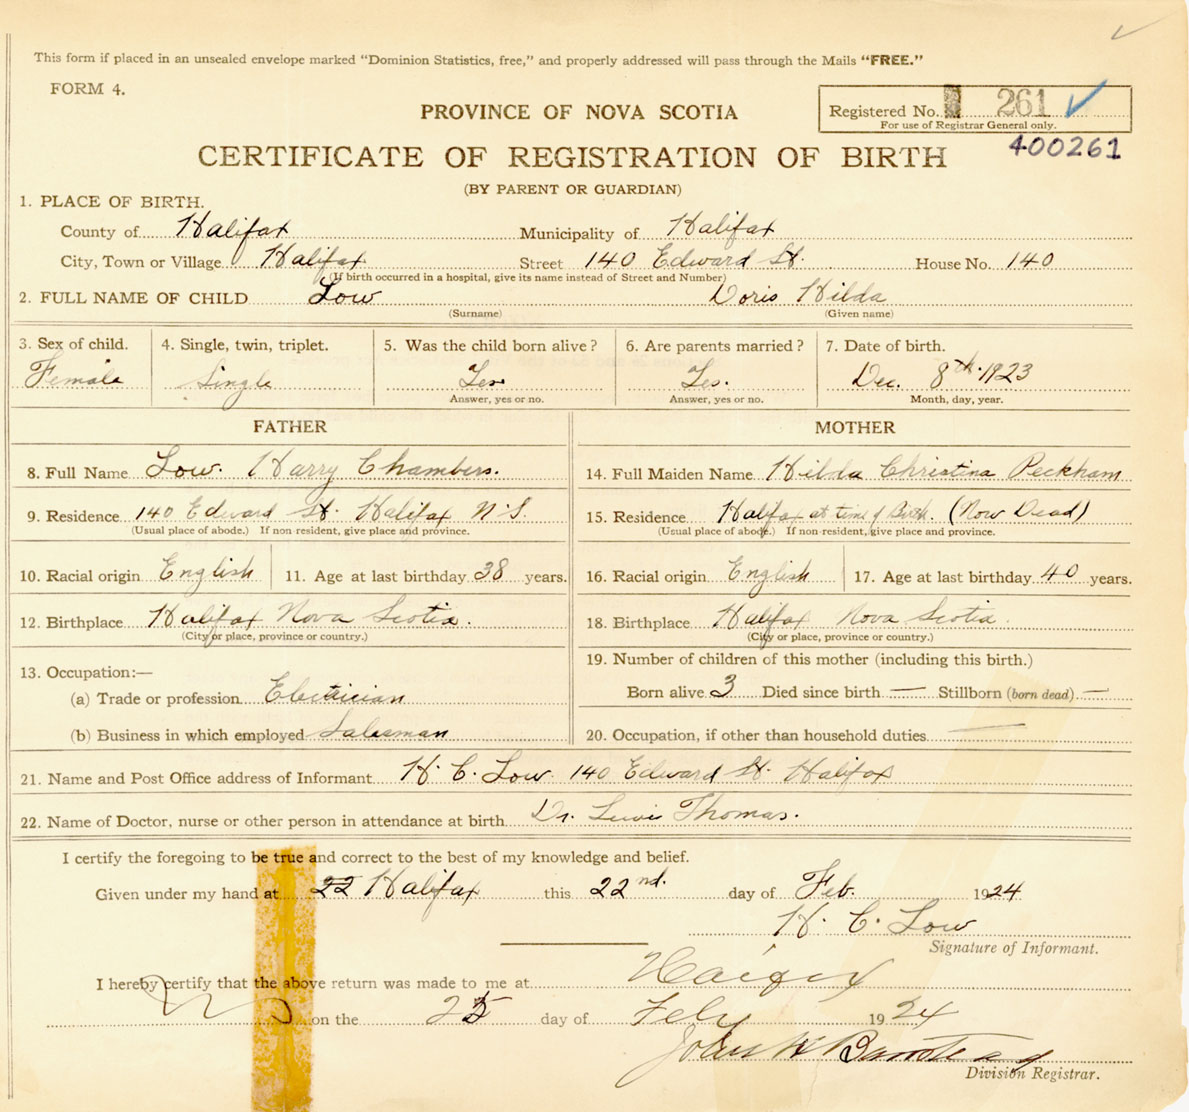 This form if placed in an unsealed envelope marked "Dominion Statistics, free," and properly addressed will pass through the Mails "FREE."
FORM 4.
PROVINCE OF NOVA SCOTIA
Registered No. 261
For use of Registrar General only.
400261
CERTIFICATE OF REGISTRATION OF BIRTH
(BY PARENT OR GUARDIAN)
1. PLACE OF BIRTH.
County of Halifax Municipality of Halifax
City, Town or Village Halifax Street 140 Edward St. House No. 140
(If birth occurred in a hospital, give its name instead of Street and Number)
2. FULL NAME OF CHILD Low Doris Hilda
(Surname) (Given name)
3. Sex of child. 4. Single, twin, triplet. 5. Was the child born alive? 6. Are parents married? 7. Date of birth.
Female Single Yes Yes. Dec. 8th. 1923
Answer, yes or no. Answer, yes or no. Month, day, year.
FATHER MOTHER
8. Full Name Low. Harry Chambers. 14. Full Maiden Name Hilda Christina Peckham
9. Residence 140 Edward St. Halifax N.S. 15. Residence Halifax at time of Birth. (Now Dead)
(Usual place of abode.) If non-resident, give place and province. (Usual place of abode.) If non-resident, give place and province.
10. Racial origin English 11. Age at last birthday 38 years. 16. Racial origin English 17. Age at last birthday 40 years.
12. Birthplace Halifax Nova Scotia. 18. Birthplace Halifax Nova Scotia.
(City or place, province or country.) (City or place, province or country.)
13. Occupation:— 19. Number of children of this mother (including this birth.)
(a) Trade or profession Electrician Born alive 3 Died since birth — Stillborn (born dead) —
(b) Business in which employed Salesman 20. Occupation, if other than household duties —
21. Name and Post Office address of Informant H. C. Low. 140 Edward St. Halifax
22. Name of Doctor, nurse or other person in attendance at birth Dr. Lewis Thomas.
I certify the foregoing to be true and correct to the best of my knowledge and belief.
Given under my hand at 22 Halifax this 22nd. day of Feb. 1924
H. C. Low
Signature of Informant.
I hereby certify that the above return was made to me at Halifax
on the 25 day of Feby 1924
John
Division Registrar.